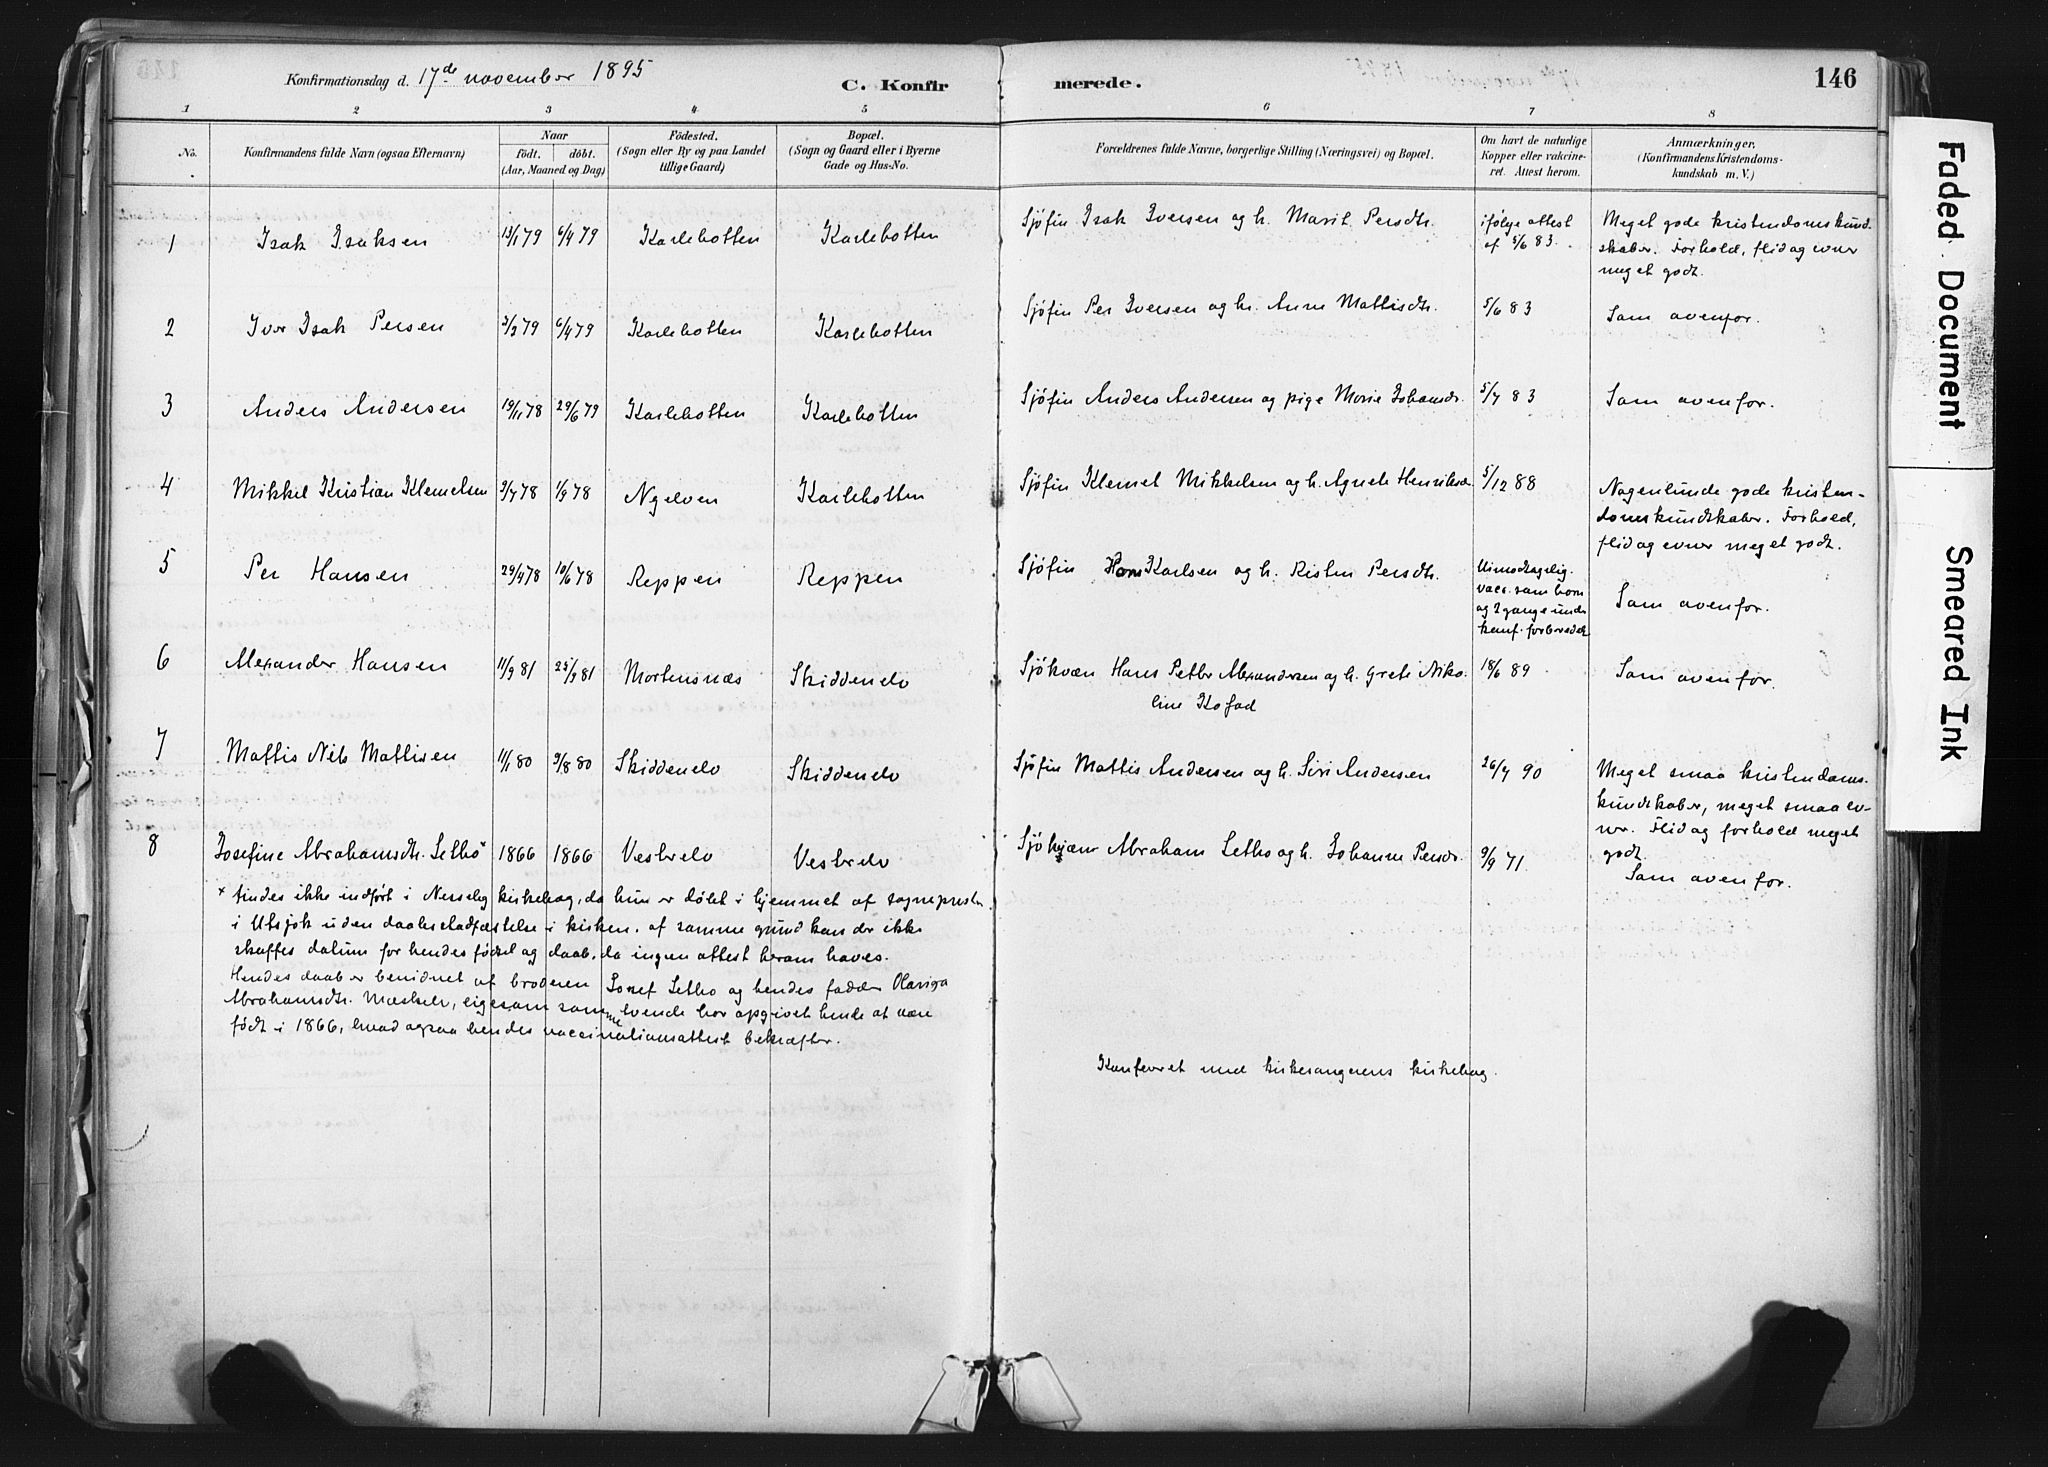 Konfirmationsdag d. 17de november 1895
C. Konfir merede. 146
1 2 3 4 5 6 7 8
No.
Konfirmandens fulde Navn (ogsaa Efternavn)
Naar
født. døbt.
(Aar, Maaned og Dag)
Födested.
(Sogn eller By og paa Landet
tillige Gaard)
Bopæl.
(Sogn og Gaard eller i Byerne
Gade og Hus-No.
Forældrenes fulde Navne, borgerlige Stilling (Næringsvei) og Bopæl.
Om havt de naturlige
Kopper eller vakcine-
ret. Attest herom.
Anmærkninger.
(Konfirmandens Kristendoms-
kundskab m. V.)
1 Isak Isaksen 13/1 79 6/4 79 Karlebotten Karlebotten Sjøfin Isak Iversen og h. Marit Persdtr. ifølge attest
af 5/6 83.
Meget gode kristendomskund-
skaber. Forhold, flid og evner
meget godt.
2 Iver Isak Persen 3/3 79 6/4 79 Karlebotten Karlebotten Sjøfin Per Iversen og h. Anne Mattisdtr. 5/6 83 Som ovenfor.
3 Anders Andersen 19/11 78 29/6 79 Karlebotten Karlebotten Sjøfin Anders Andersen og pige Marie Johansdr. 5/7 83 Som ovenfor.
4 Mikkel Kristian Klemetsen 3/7 78 1/9 78 Nyelven Karlebotten Sjøfin Klemet Mikkelsen og h. Agnete Henriksd. 5/12 88
Nogenlunde gode kristen-
domskundskaber. Forhold,
flid og evner meget godt.
5 Per Hansen 29/4 78 10/6 78 Reppen Reppen Sjøfin Hans Karlsen og h. Kisten Persdtr. Uimodtagelig.
vacc. som barn
og 2 gange under
konf. forberedels
Som ovenfor.
6 Alexander Hansen 11/9 81 25/9 81 Mortensnæs Skiddenelv Sjøkvæn Hans Petter Alexandersen og h. Grete Niko-
line Kofod
18/6 89 Som ovenfor.
7 Mattis Nils Mattisen 11/1 80 9/8 80 Skiddenelv Skiddenelv Sjøfin Mattis Andersen og h. Siri Andersen 26/7 90
Meget smaa kristendoms-
kundskaber, meget smaa ev-
ner. Flid og forhold meget
godt.
8 Josefine Abrahamsdtr. Letho x 1866 1866 Vestrelv Vestrelv Sjøkvæn Abraham Letho og h. Johanne Persdr. 9/9 71. Som ovenfor.
x findes ikke indført i Nesseby kirkebog, da hun er døbt i hjemmet af sognepresten
i Utsjok uden daabsstadfæstelse i kirken. af samme grund kan der ikke
skaffes datum for hendes fødsel og daab, da ingen attest herom haves.
Hendes daab er bevidnet af broderen Josef Letho og hendes fadder
Abrahamsdtr. ligesom samme har opgivet hende at være
født i 1866, hvad ogsaa hendes vaccinationsattest bekræfter.
Konfereret med kirkesangerens kirkebog.
Faded Document
Smeared Ink